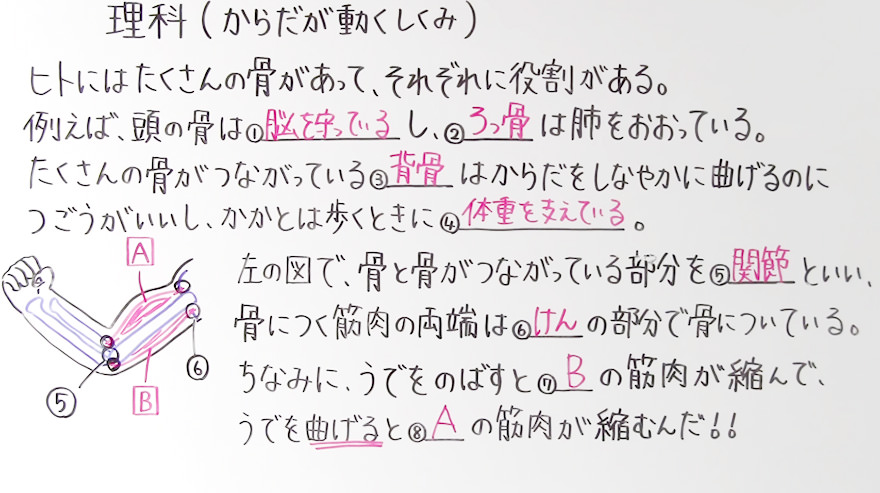 理科(からだが動くしくみ)
ヒトにはたくさんの骨があって、それぞれに役割がある。
例えば、頭の骨は①脳を守っているし、②ろっ骨は肺をおおっている。
たくさんの骨がつながっている③背骨はからだをしなやかに曲げるのに
つごうがいいし、かかとは歩くときに④体重を支えている。
A
左の図で、骨と骨がつながっている部分を⑤関節といい、
骨につく筋肉の両端は⑥けんの部分で骨についている。
⑤
B
⑥
ちなみに、うでをのばすと⑦Bの筋肉が縮んで、
うでを曲げると⑧Aの筋肉が縮むんだ!!